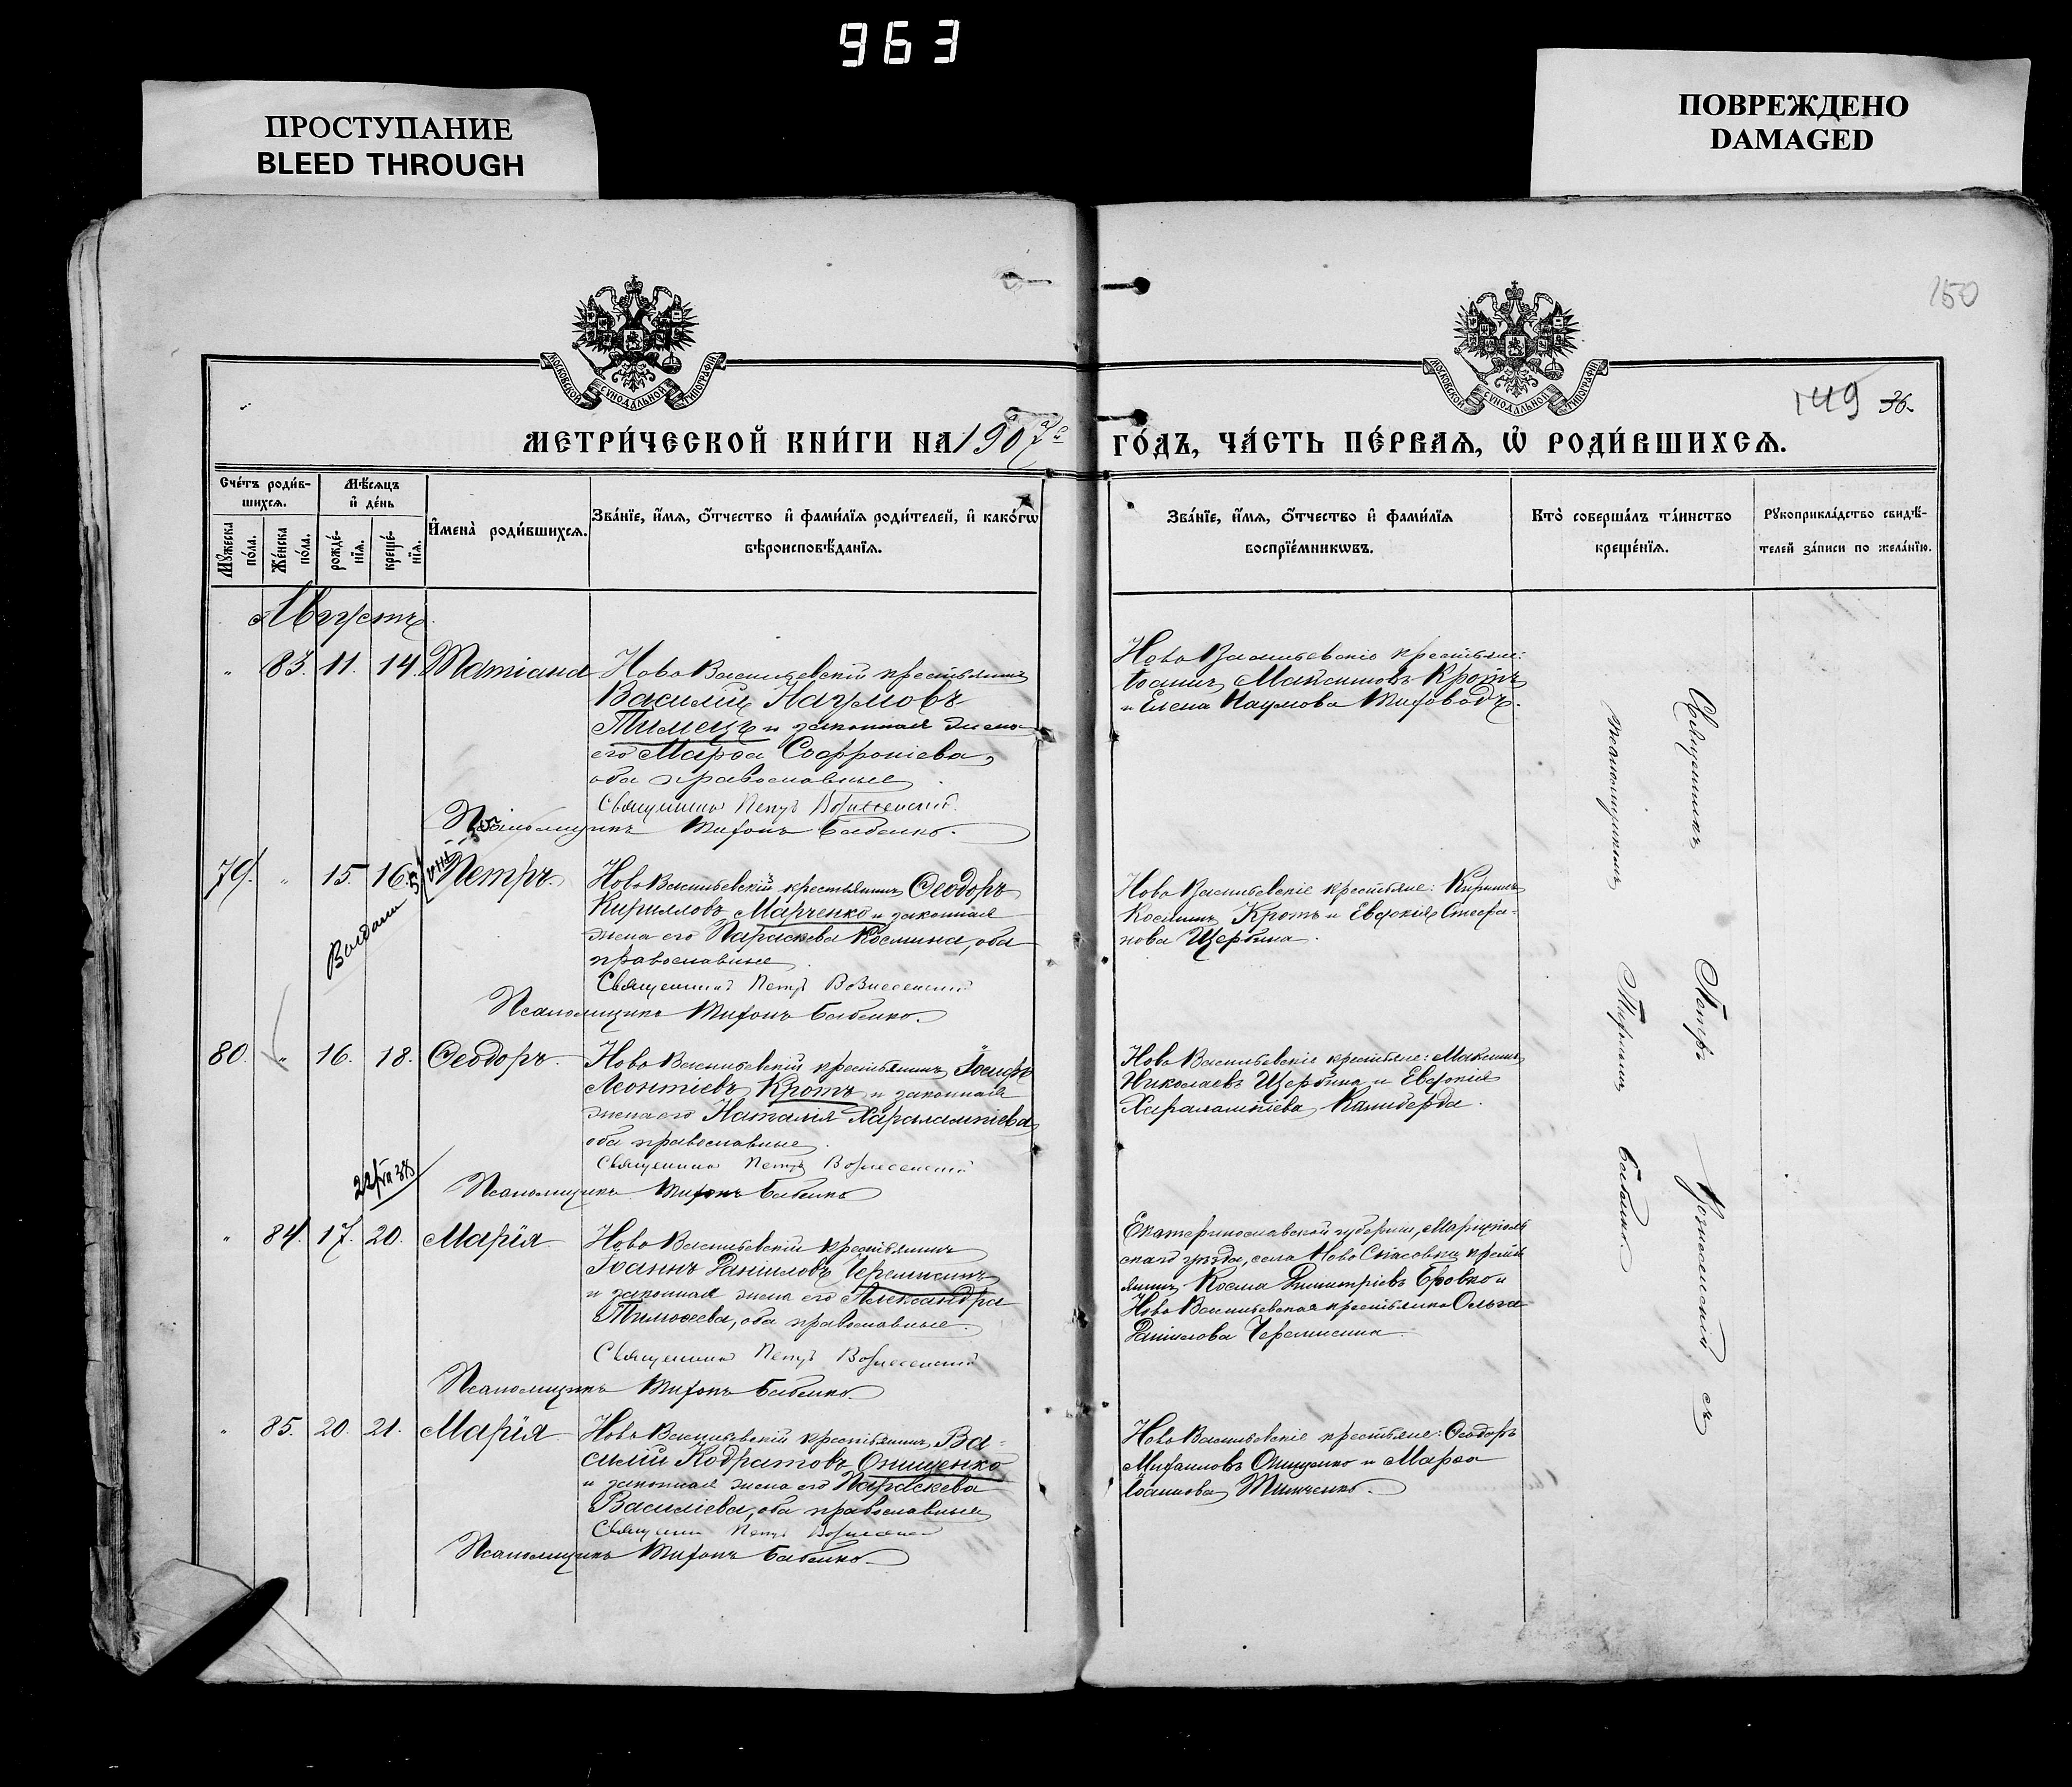 963
ПРОСТУПАНИЕ
BLEED THROUGH
ПОВРЕЖДЕНО
DAMAGED
150
МОСКОВСКОЙ СѴНОДАЛЬНОЙ ТИПОГРАФІИ
МОСКОВСКОЙ СѴНОДАЛЬНОЙ ТИПОГРАФІИ
149 36.
МЕТРИ́ЧЕСКОЙ КНИ́ГИ НА 1907й
ГО́ДЪ, ЧА́СТЬ ПЕ́РВАѦ, Ѡ҆ РОДИ́ВШИХСѦ.
Сче́тъ роди́в-
шихсѧ.
Мѣ́сѧцъ
и҆ де́нь
Мꙋ́жеска
по́ла.
Же́нска
по́ла.
рожде́-
нїѧ.
креще́-
нїѧ.
И҆мена̀ роди́вшихсѧ.
Зва́нїе, и҆́мѧ, ѻ҆́тчество и҆ фами́лїѧ роди́телей, и҆ како́гѡ
вѣроисповѣ́данїѧ.
Зва́нїе, и҆́мѧ, ѻ҆́тчество и҆ фами́лїѧ
воспрїе́мникѡвъ.
Кто̀ соверша́лъ та́инство
креще́нїѧ.
Рꙋкоприкла́дство свидѣ́-
телей за́писи по жела́нїю.
Августъ.
" 83. 11. 14. Татіана
НовоВасильевскій крестьянинъ
Василій Наумовъ
Тимецъ и законная жена
его Марѳа Софроніева,
оба православные
Священникъ Петръ Вознесенскій
Псаломщикъ Тихонъ Бабенко.
НовоВасильевскіе крестьяне:
Іоаннъ Максимовъ Кротъ
и Елена Наумова
79. " 15. 16. Петръ.
НовоВасильевскій крестьянинъ Ѳеодоръ
Кирилловъ Марченко и законная
жена его Параскева Космина, оба
православные
Священникъ Петръ Вознесенскій
Псаломщикъ Тихонъ Бабенко.
НовоВасильевскіе крестьяне: Кириллъ
Косминъ Кротъ и Евфокія Стефа-
нова Щербина.
80. " 16. 18. Ѳеодоръ.
НовоВасильевскій крестьянинъ Іосифъ
Леонтіевъ Кротъ и законная
жена его Наталія Харалампіева,
оба православные.
Священникъ Петръ Вознесенскій
Псаломщикъ Тихонъ Бабенко
НовоВасильевскіе крестьяне: Максимъ
Николаевъ Щербина и Евфокія
Харалампіева Калиберда.
" 84. 17. 20. Марія
НовоВасильевскій крестьянинъ
Іоаннъ Даніиловъ Черемисинъ
и законная жена его Александра
Тимоѳеева, оба православные.
Священникъ Петръ Вознесенскій
Псаломщикъ Тихонъ Бабенко.
Екатеринославской губерніи, Маріуполь
скаго уѣзда, села НовоСпасовки кресть
янинъ Косма Димитріевъ Бровко и
НовоВасильевская крестьянка Ольга
Даніилова Черемисина.
" 85. 20. 21. Марія
НовоВасильевскій крестьянинъ Ва-
силій Кодратовъ Онищенко
и законная жена его Параскева
Василіева, оба православные
Священникъ Петръ Вознесенскій
Псаломщикъ Тихонъ Бабенко.
НовоВасильевскіе крестьяне: Ѳеодоръ
Михаиловъ Онищенко и Марѳа
Іоаннова Тимченко.
Священникъ Петръ Вознесенскій съ
псаломщикомъ Тихономъ Бабенко.